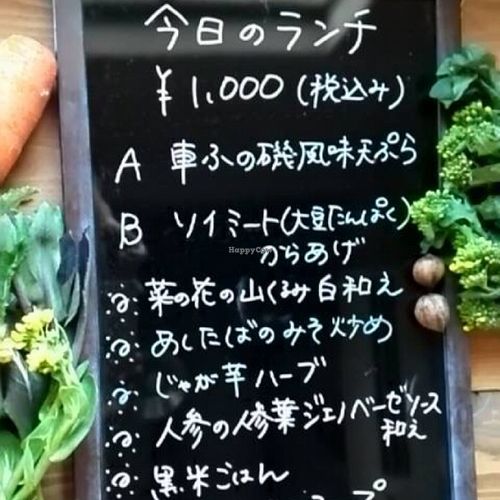 今日のランチ
¥1,000(税込み)
A 車ふの磯風味天ぷら
B ソイミート(大豆たんぱく)
からあげ
HappyCow
菜の花の山くるみ白和え
あしたばのみそ炒め
じゃが芋ハーブ
人参の人参葉ジェノベーゼソース
和え
黒米ごはん